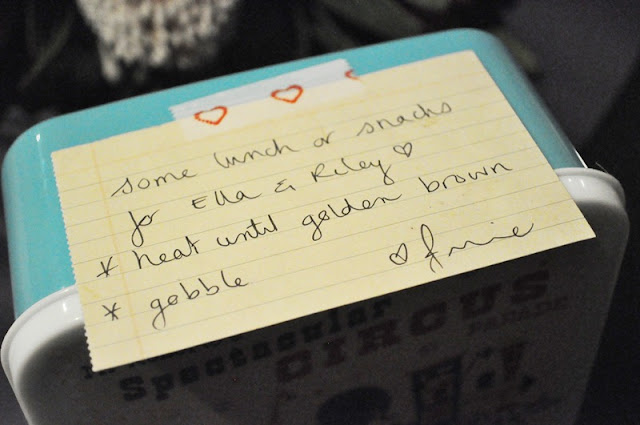 some lunch or snacks
for Ella & Riley ♡
* heat until golden brown
* gobble
Spectacular
CIRCUS
PARADE